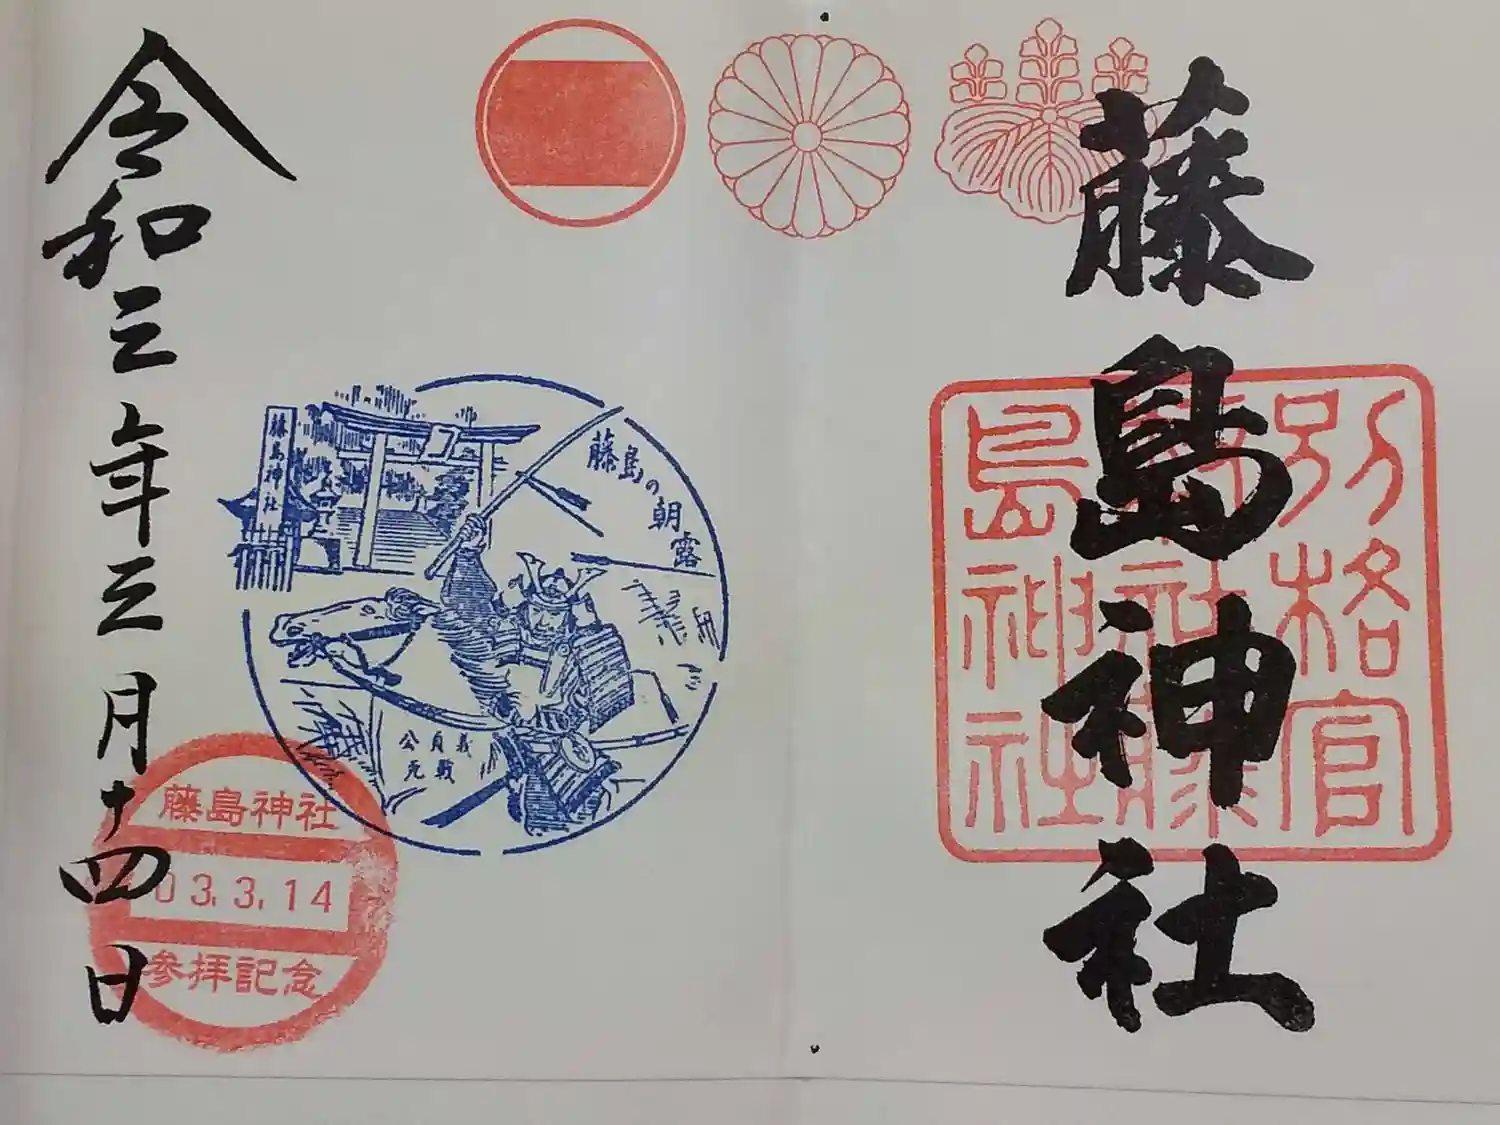 藤島神社
別格官
社藤
島神社
藤島神社
藤島の朝露
義貞公
奮戦
令和三年三月十四日
藤島神社
03.3.14
参拝記念